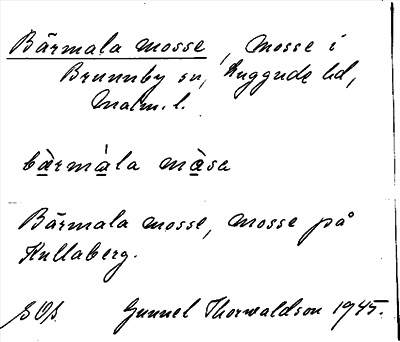 Bärmala mosse, mosse i
Brunnby sn, Luggude hd,
Malm. l.
bàrmàla màsa
Bärmala mosse, mosse på
Kullaberg.
Gunnel Thorwaldson 1945.